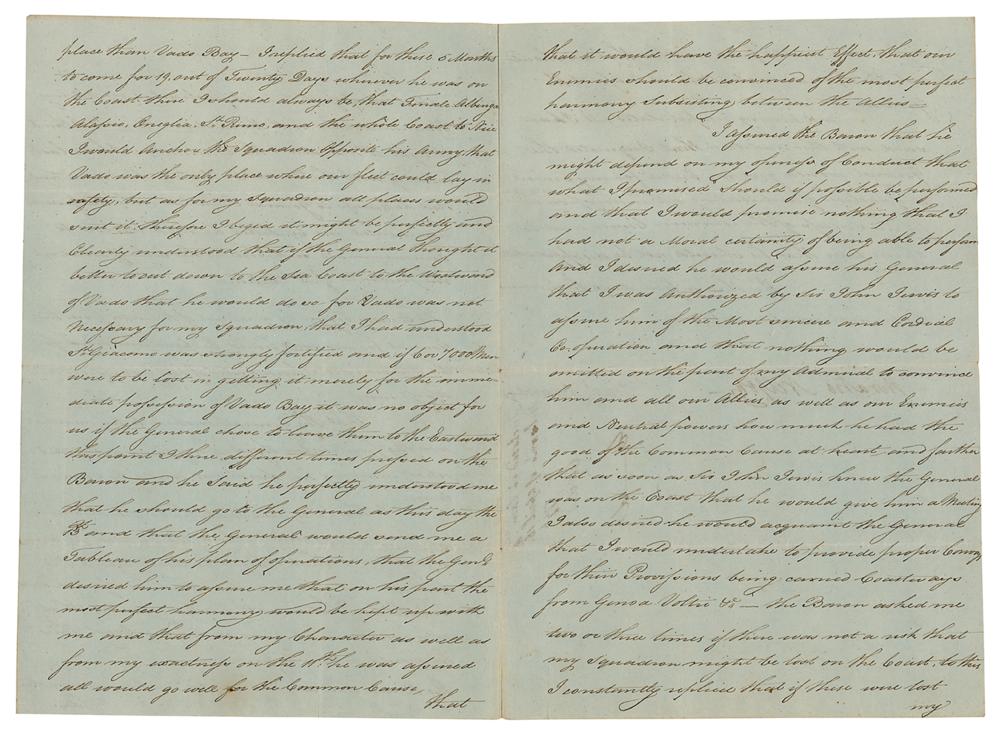 place than Vado Bay – I replied that for these 6 Months
to come for 19 out of Twenty Days wherever he was on
the Coast there I should always be, that Finale Albenga
Alassio, Oneglia, St. Remo, and the whole Coast to Nice
I would Anchor the Squadron Opposite his Army that
Vado was the only place where our fleet could lay in
safety, but as for my Squadron all places would
suit it. therefore I beged it might be perfectly and
Clearly understood that if the General thought it
better to set down to the Sea Coast to the Westward
of Vado that he would do so for Vado was not
necessary for my Squadron, that I had understood
St. Giacomo was strongly fortified and if 6 or 7000 Men
were to be lost in getting it merely for the imme-
diate possession of Vado Bay, it was no object for
us if the General chose to leave them to the Eastward
this point I three different times pressed on the
Baron and he said he perfectly understood me
that he should go to the General as this day the
and that the General would send me a
Tableau of his plan of operations, that the Genl.
desired him to assure me that on his part the
most perfect harmony would be kept up with
me and that from my Character as well as
from my exactness on the 11th. he was assured
all would go well for the Common Cause,
that
that it would have the happiest Effect, that our
Enemies should be convinced of the most perfect
harmony Subsisting between the Allies =
I assured the Baron that he
might depend on my openess of Conduct that
what I promised Should if possible be performed
and that I would promise nothing that I
had not a Moral certainty of being able to perform
And I desired he would assure his General
that I was Authorized by Sir John Jervis to
assure him of the Most sincere and Cordial
Co-operation and that nothing would be
omitted on the part of my Admiral to convince
him and all our Allies as well as our Enemies
and Neutral powers how much he had the
good of the Common Cause at heart and farther
that as soon as Sir John Jervis knew the General
was on the Coast that he would give him a Meeting
I also desired he would acquaint the General
that I would undertake to provide proper Convoys
for their Provissions being carried Coastways
from Genoa Voltri &c – the Baron asked me
two or three times if there was not a risk that
my Squadron might be lost on the Coast, to this
I constantly replied that if these were lost
my